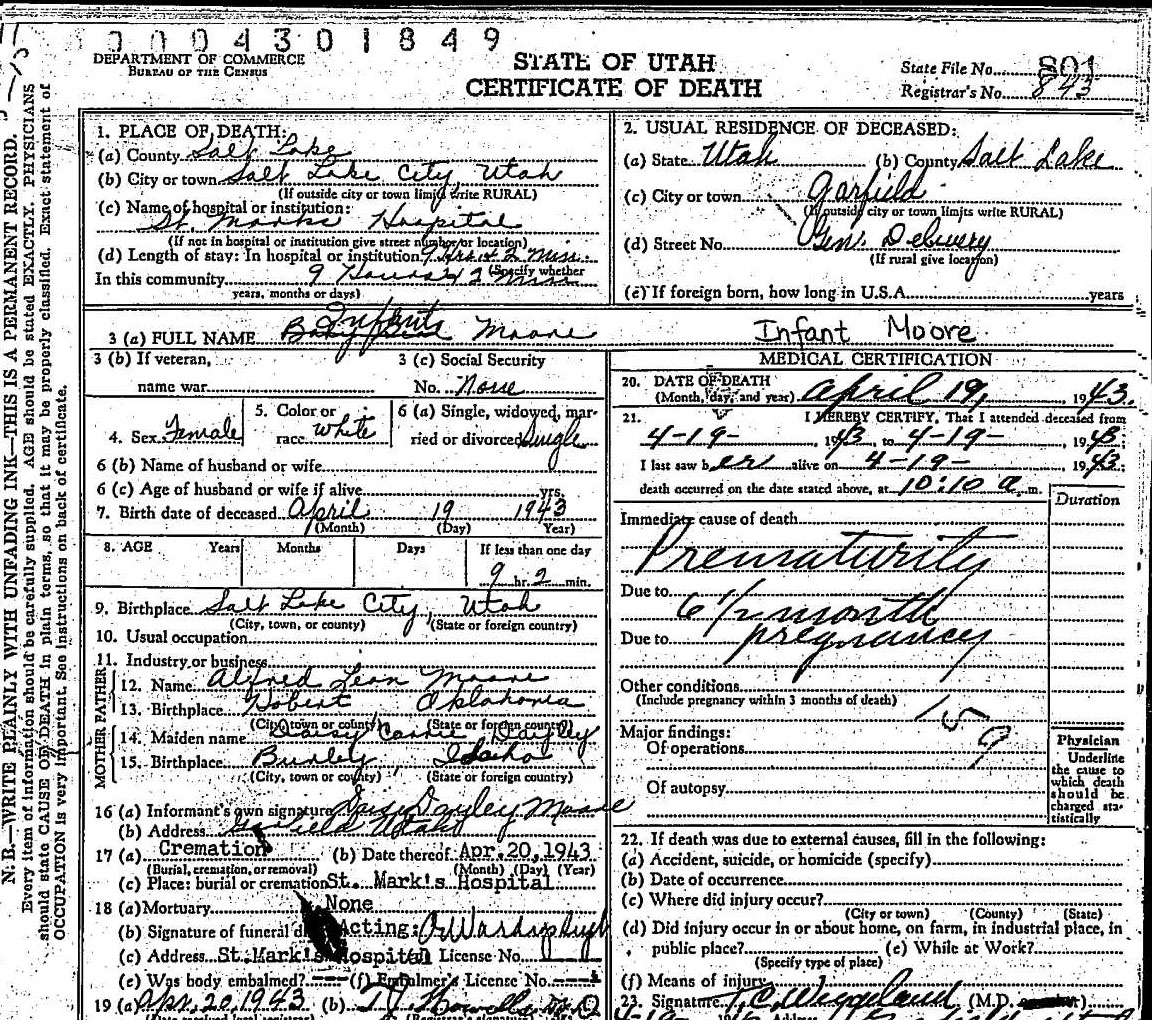 0 0 0 4 3 0 1 8 4 9
DEPARTMENT OF COMMERCE
BUREAU OF THE CENSUS
STATE OF UTAH
CERTIFICATE OF DEATH
State File No. 801
Registrar's No. 843
N. B.—WRITE PLAINLY WITH UNFADING INK—THIS IS A PERMANENT RECORD.
Every item of information should be carefully supplied. AGE should be stated EXACTLY. PHYSICIANS
should state CAUSE OF DEATH in plain terms, so that it may be properly classified. Exact statement of
OCCUPATION is very important. See instructions on back of certificate.
1. PLACE OF DEATH:
(a) County Salt Lake
(b) City or town Salt Lake City Utah
(If outside city or town limits write RURAL)
(c) Name of hospital or institution:
St. Marks Hospital
(If not in hospital or institution give street number or location)
(d) Length of stay: In hospital or institution 9 Hrs & 2 Min.
(Specify whether
In this community 9 Hours & 2 Min
years, months or days)
2. USUAL RESIDENCE OF DECEASED:
(a) State Utah (b) County Salt Lake
(c) City or town Garfield
(If outside city or town limits write RURAL)
(d) Street No. Gen. Delivery
(If rural give location)
(e) If foreign born, how long in U.S.A. years
3 (a) FULL NAME Baby Infant Moore Infant Moore
3 (b) If veteran,
name war
3 (c) Social Security
No. None
4. Sex Female
5. Color or
race white
6 (a) Single, widowed, mar-
ried or divorced Single
6 (b) Name of husband or wife
6 (c) Age of husband or wife if alive yrs.
7. Birth date of deceased April 19 1943
(Month) (Day) Year)
8. AGE Years Months Days If less than one day
9 hr. 2 min.
9. Birthplace Salt Lake City, Utah
(City, town, or county) (State or foreign country)
10. Usual occupation
11. Industry or business
FATHER
12. Name Alfred Leon Moore
13. Birthplace Hobert Oklahoma
(City town or county) (State or foreign country)
MOTHER
14. Maiden name Daisy Carrie Dayley
15. Birthplace Burley, Idaho
(City, town or county) (State or foreign country)
16 (a) Informant's own signature Daisy Dayley Moore
(b) Address Garfield Utah
17 (a) Cremation (b) Date thereof Apr. 20, 1943
(Burial, cremation, or removal) (Month) (Day) (Year)
(c) Place: burial or cremation St. Mark's Hospital
18 (a) Mortuary None
(b) Signature of funeral Acting:
(c) Address St. Mark's Hospital License No.
(e) Was body embalmed? --- (f) Embalmer's License No. ----
19 (a) Apr. 20, 1943 (b) M.D.
MEDICAL CERTIFICATION
20. DATE OF DEATH
(Month, day, and year) April 19, 1943.
21. I HEREBY CERTIFY, That I attended deceased from
4-19-, 1943, to 4-19-, 1943;
I last saw her alive on 4-19-, 1943;
death occurred on the date stated above, at 10:10 a. m.
Duration
Immediate cause of death
Prematurity
Due to 6 1/2 month
Due to pregnancy
Other conditions
(Include pregnancy within 3 months of death)
159
Major findings:
Of operations
Of autopsy
Physician
Underline
the cause to
which death
should be
charged sta-
tistically
22. If death was due to external causes, fill in the following:
(a) Accident, suicide, or homicide (specify)
(b) Date of occurrence
(c) Where did injury occur?
(City or town) (County) (State)
(d) Did injury occur in or about home, on farm, in industrial place, in
public place? (e) While at Work?
(Specify type of place)
(f) Means of injury
23. Signature (M.D.